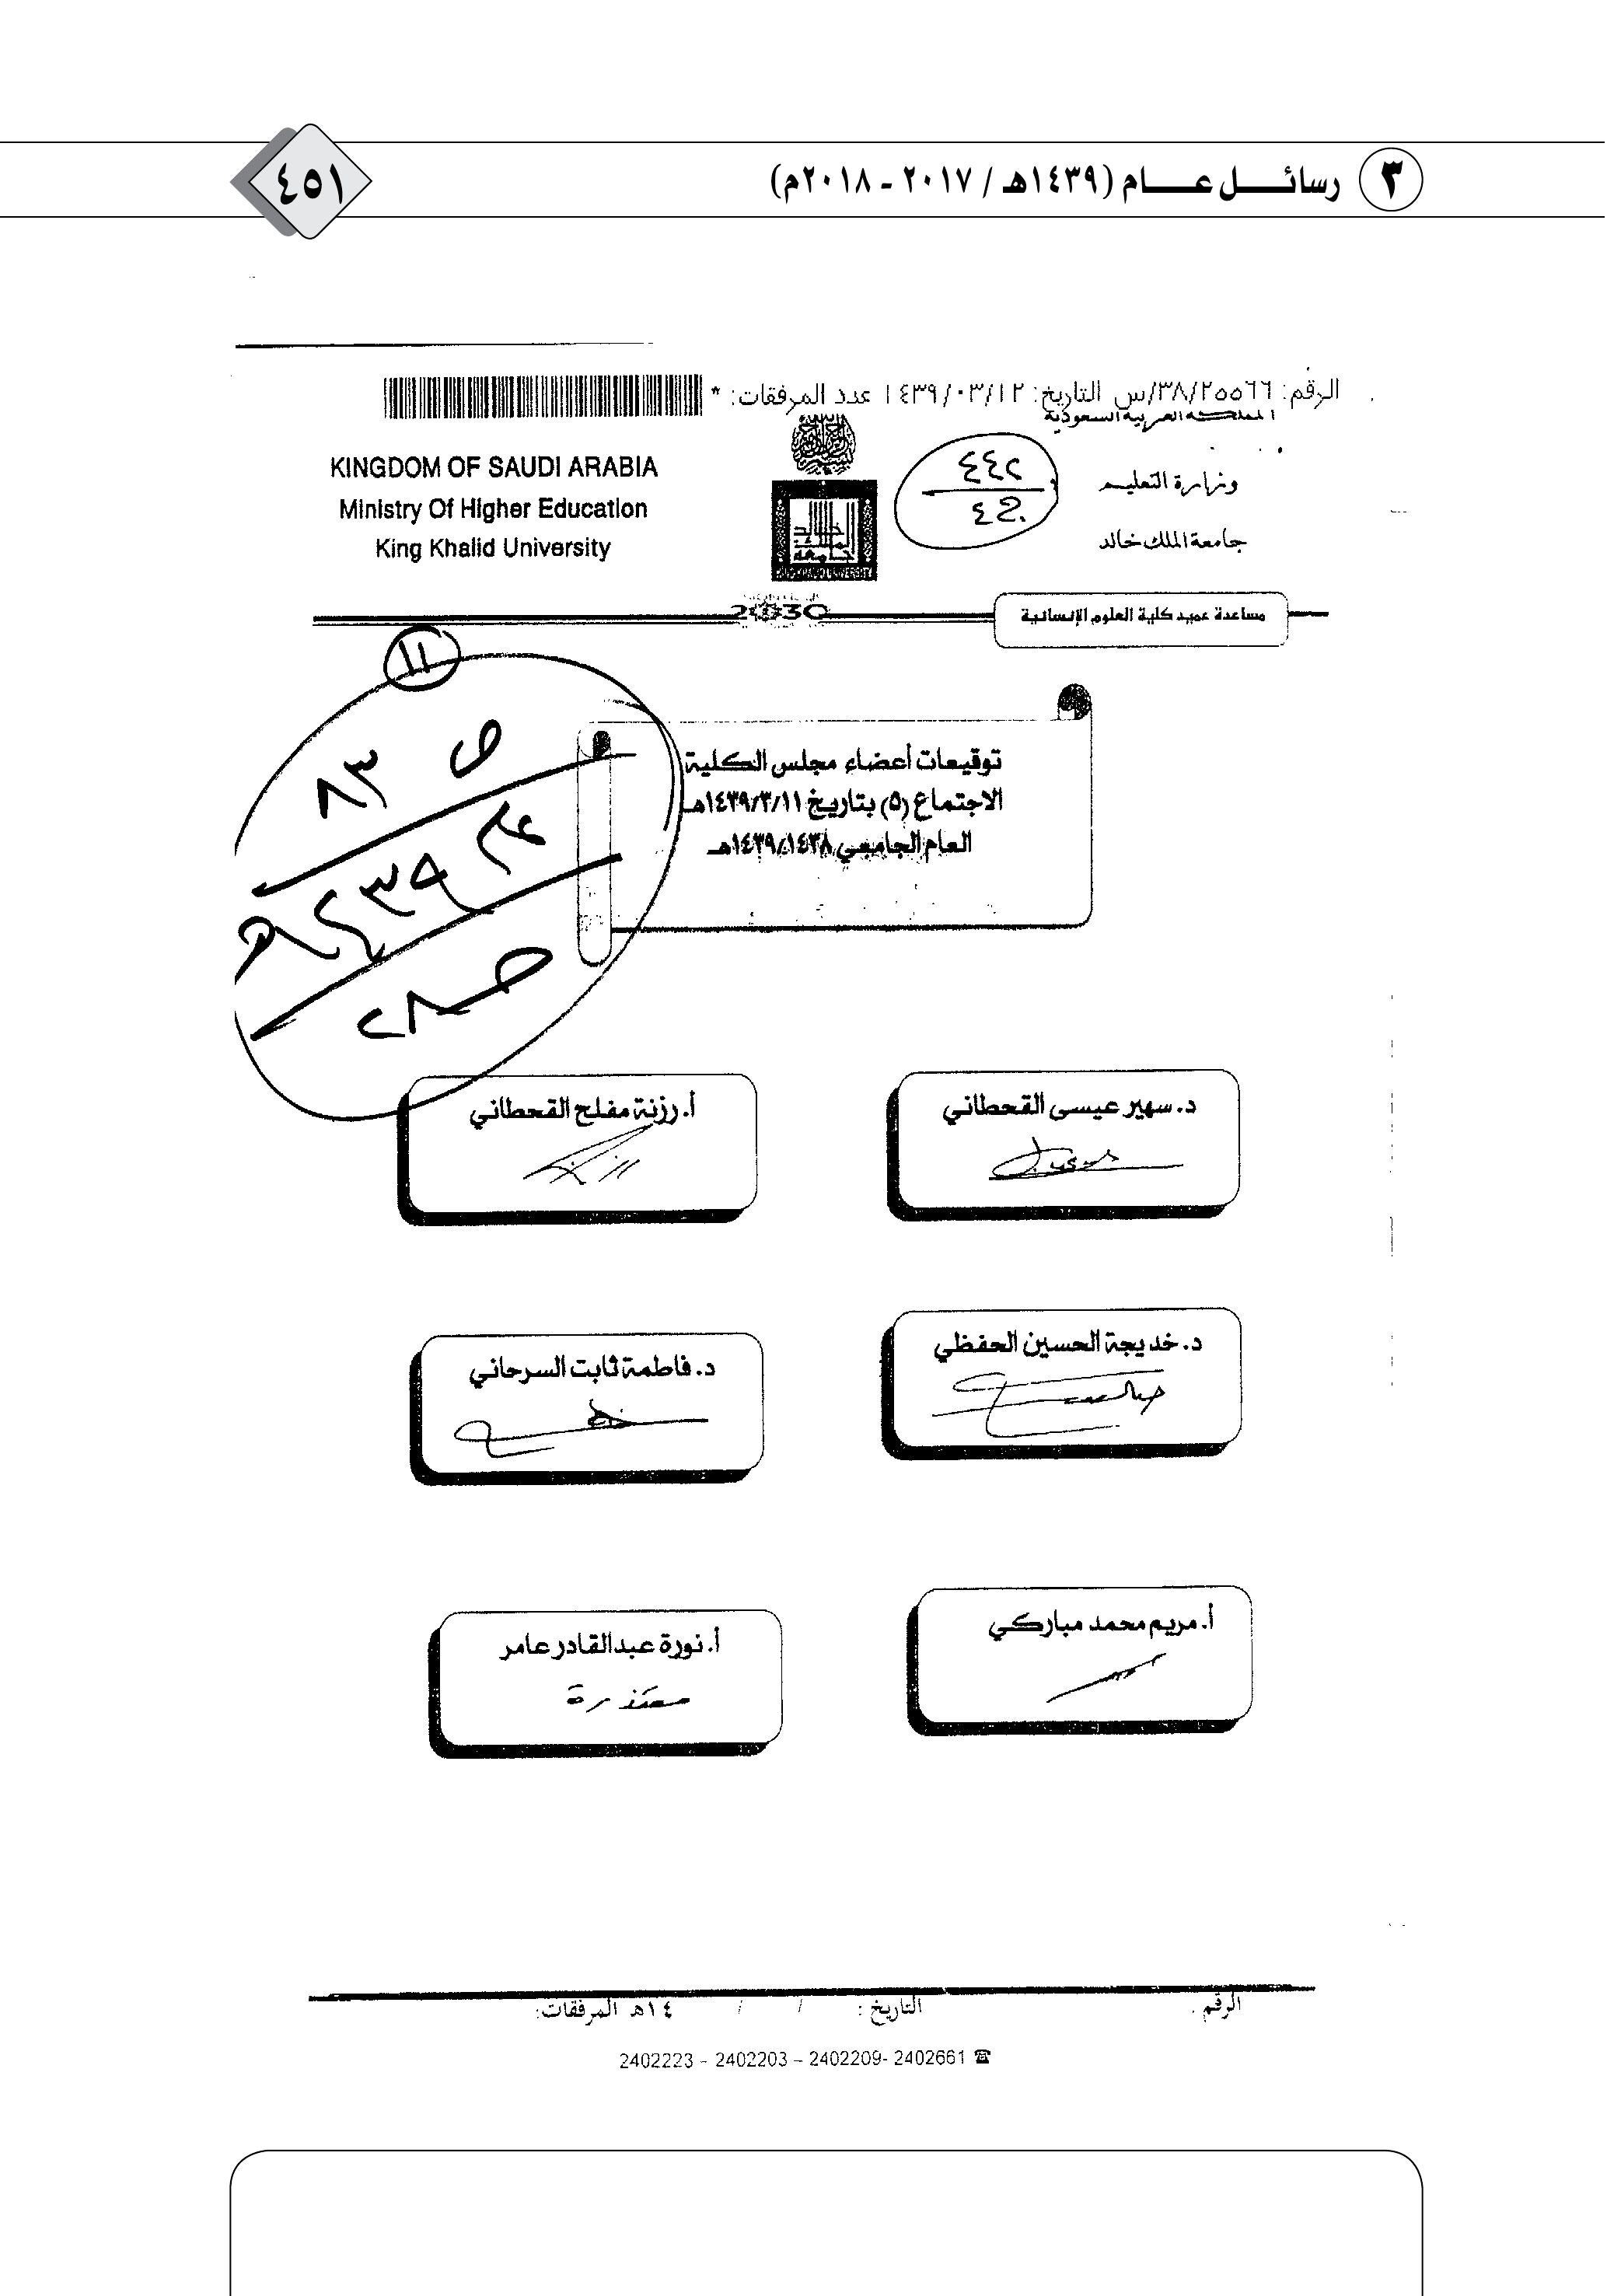 ٣ رسائل عام (١٤٣٩هـ / ٢٠١٧ - ٢٠١٨م)
٤٥١
الرقم: ٣٨/٢٥٥٦٦/س التاريخ: ١٤٣٩/٠٣/١٢ عدد المرفقات: *
المملكة العربية السعودية
وزارة التعليم
جامعة الملك خالد
KINGDOM OF SAUDI ARABIA
Ministry Of Higher Education
King Khalid University
٤٤٢
جامعة الملك خالد
2030
مساعدة عميد كلية العلوم الإنسانية
١١
ص ٨٣
عام ١٤٣٩هـ
توقيعات أعضاء مجلس الكلية
الاجتماع (٥) بتاريخ ١٤٣٩/٣/١١هـ
العام الجامعي ١٤٣٩/١٤٣٨هـ
د. سهير عيسى القحطاني
أ. رزنة مفلح القحطاني
د. خديجة الحسين الحفظي
د. فاطمة ثابت السرحاني
أ. مريم محمد مباركي
أ. نورة عبدالقادر عامر
معتذرة
الرقم . التاريخ : / / ١٤هـ المرفقات:
☎ 2402661 -2402209 – 2402203 - 2402223